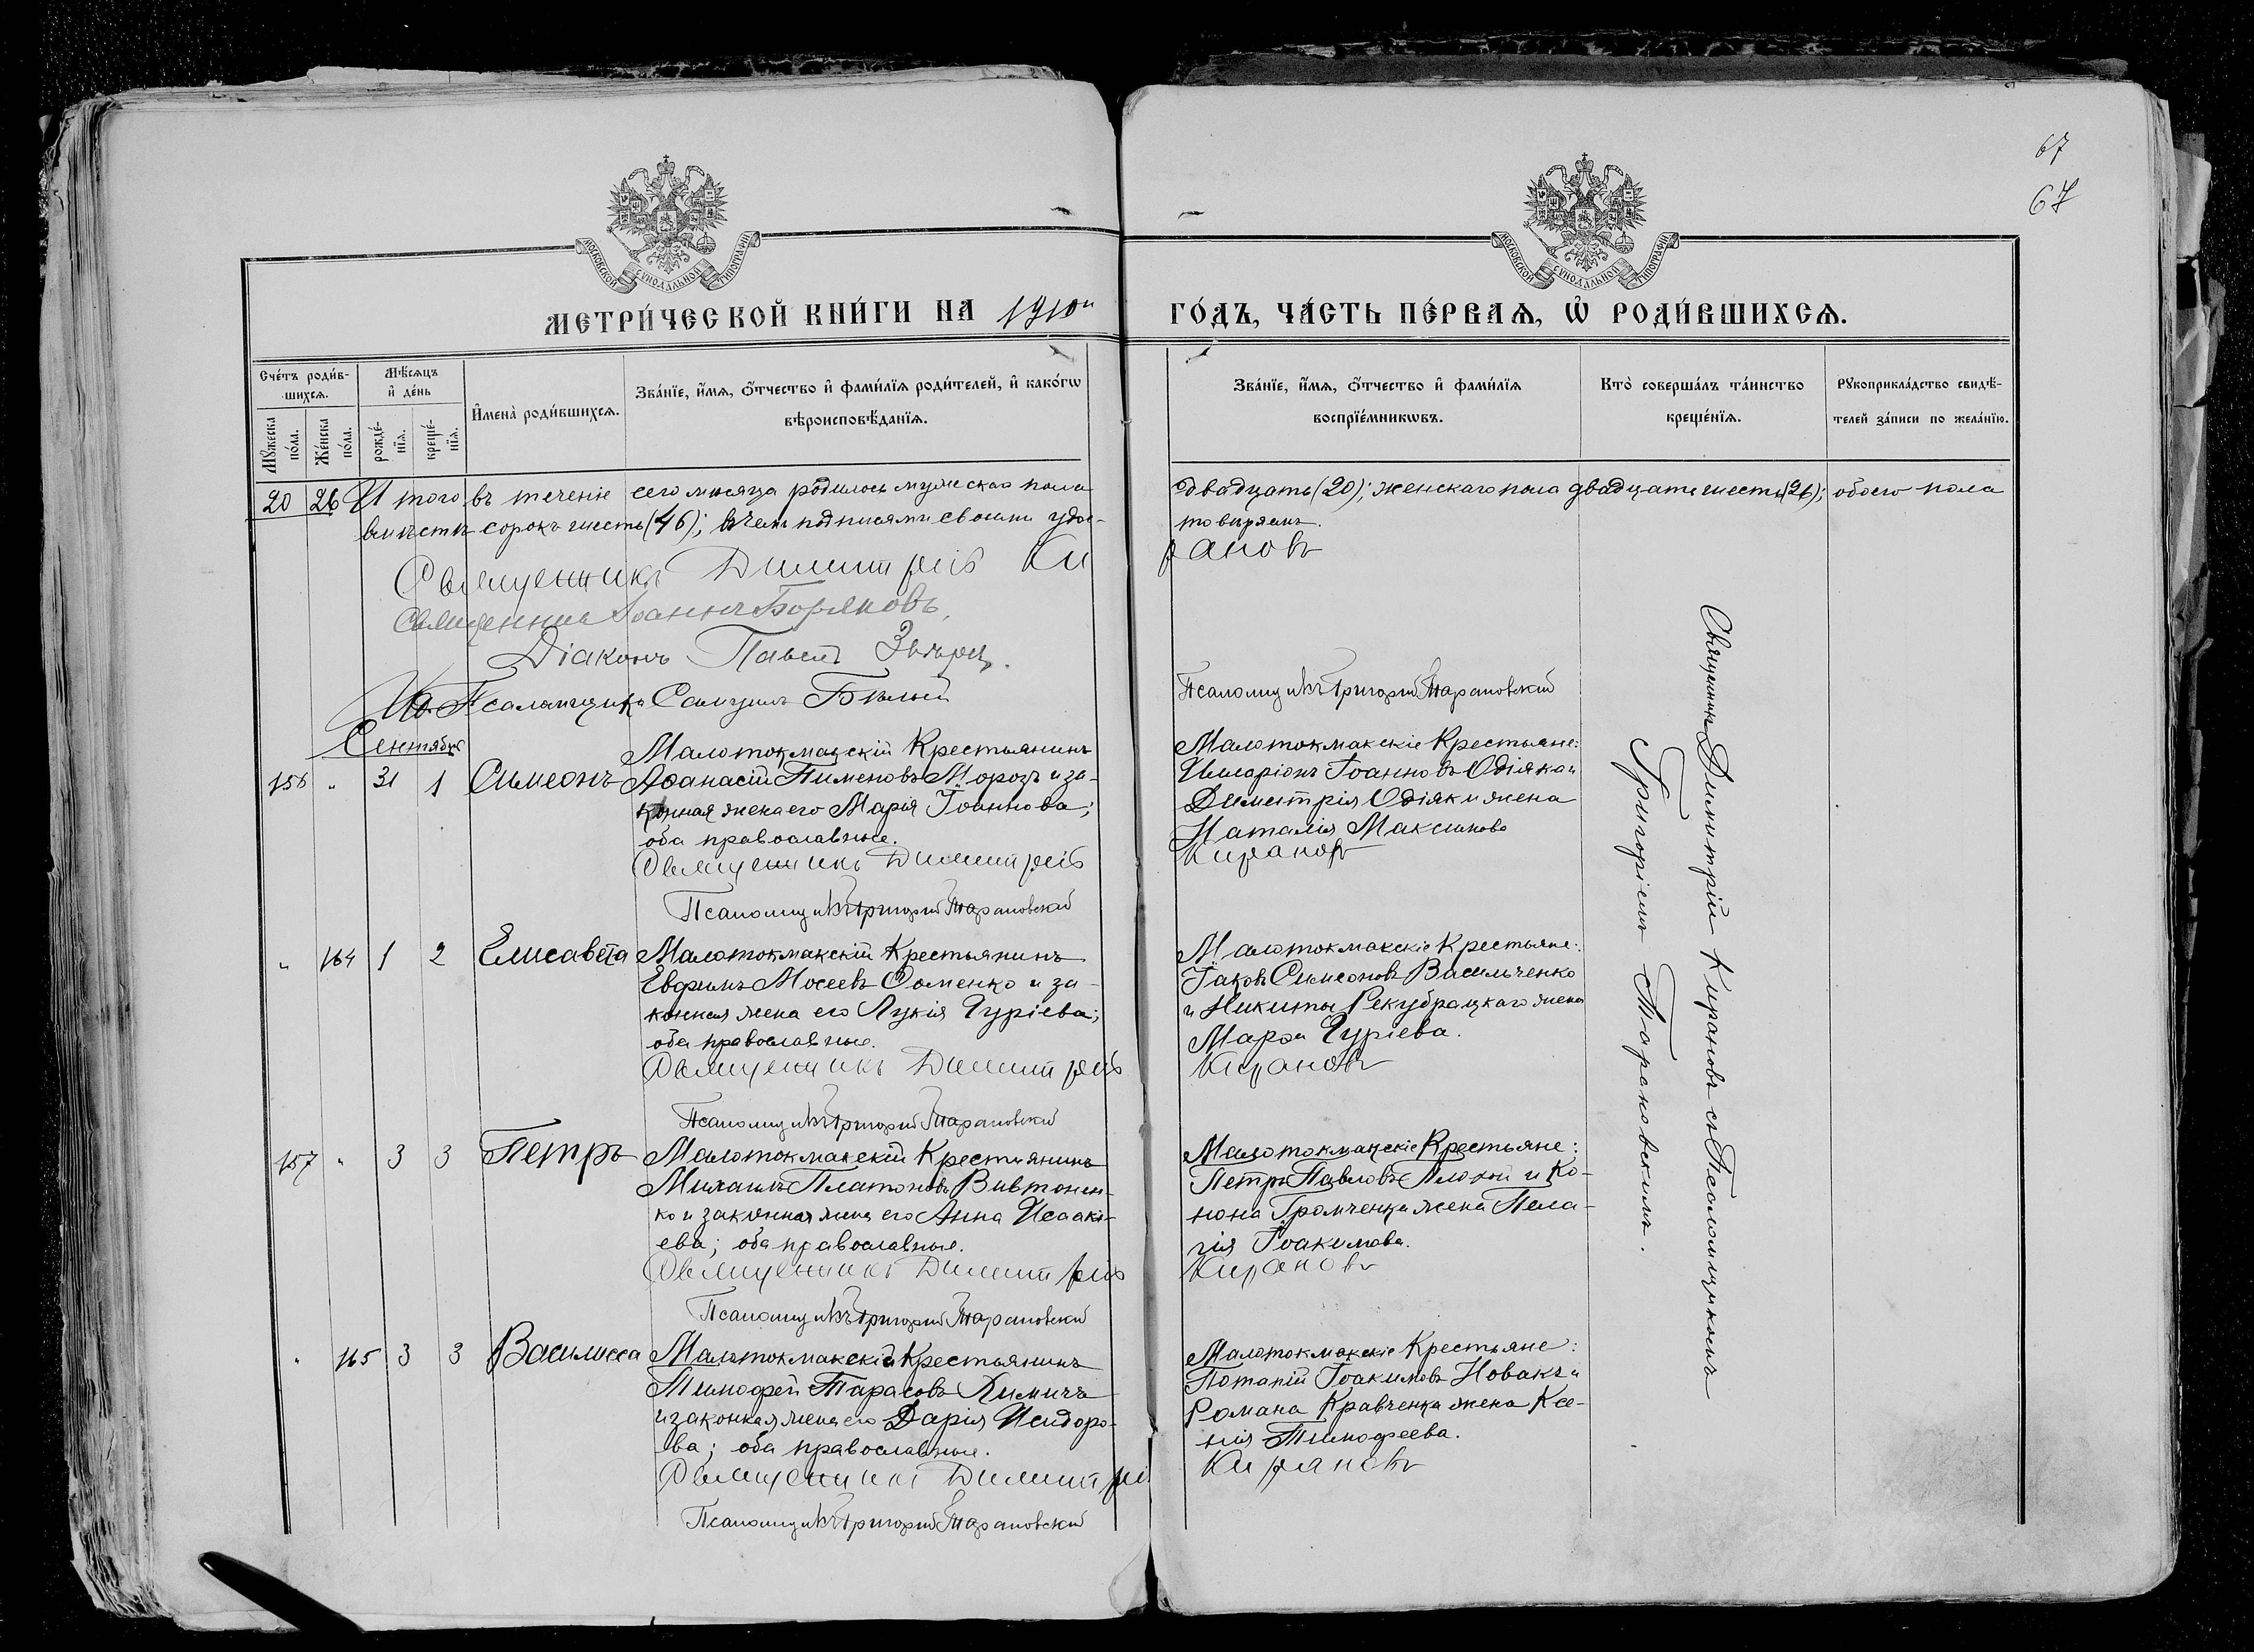 67
67
МОСКОВСКОЙ СѴНОДАЛЬНОЙ ТИПОГРАФІИ
МОСКОВСКОЙ СѴНОДАЛЬНОЙ ТИПОГРАФІИ
МЕТРИ́ЧЕСКОЙ КНИ́ГИ НА 1910й
ГО́ДЪ, ЧА́СТЬ ПЕ́РВАѦ, Ѡ҆ РОДИ́ВШИХСѦ.
Сче́тъ роди́в-
шихсѧ.
Мꙋжеска по́ла.
Же́нска по́ла.
Мѣ́сѧцъ и҆ де́нь
рожде́-нїѧ.
креще́-нїѧ.
И҆мена̀ роди́вшихсѧ.
Зва́нїе, и҆́мѧ, ѻ҆́тчество и҆ фами́лїѧ роди́телей, и҆ како́гѡ
вѣроисповѣ́данїѧ.
Зва́нїе, и҆́мѧ, ѻ҆́тчество и҆ фами́лїѧ
воспрїе́мникѡвъ.
Кто̀ соверша́лъ та́инство
креще́нїѧ.
Рꙋкоприкла́дство свидѣ́-
телей за́писи по жела́нїю.
20 26 Итого въ теченіе сего мѣсяца родилось мужескаго пола
двадцать (20); женскаго пола двадцать шесть (26); обоего пола
вмѣстѣ сорокъ шесть (46); въ чемъ подписями своими удо-
товѣряемъ.
Священникъ Димитрій Ки
рановъ
Священникъ Іоаннъ Боряковъ.
Діаконъ Павелъ
Псаломщика Самуилъ Бѣлый
Псаломщикъ Григорій Тарановскій
Сентябрь
156 " 31 1 Симеонъ
Малотокмакскій Крестьянинъ
Аѳанасій Пименовъ Морозъ и за-
конная жена его Марія Іоаннова;
оба православные.
Священникъ Димитрій
Псаломщикъ Григорій Тарановскій
Малотокмакскіе Крестьяне:
Илларіонъ Іоанновъ Одіяка и
Димитрія Одіяки жена
Наталія Максимова
Кирановъ
" 164 1 2 Елисавета
Малотокмакскій Крестьянинъ
Евфимъ Мосеевъ Ѳоменко и за-
конная жена его Лукія Гуріева;
оба православные.
Священникъ Димитрій
Псаломщикъ Григорій Тарановскій
Малотокмакскіе Крестьяне:
Іаковъ Симеоновъ Васильченко
и Никиты Рекубрацкаго жена
Марѳа Гуріева.
Кирановъ
157 " 3 3 Петръ
Малотокмакскій Крестьянинъ
Михаилъ Платоновъ Вивтонен-
ко и законная жена его Анна Исаакі-
ева; оба православные.
Священникъ Димитрій
Псаломщикъ Григорій Тарановскій
Малотокмакскіе Крестьяне:
Петръ Павловъ и Ко-
нона Громченка жена Пела-
гія Іоакимова.
Кирановъ
" 165 3 3 Василисса
Малотокмакскій Крестьянинъ
Тимофей Тарасовъ Химичъ
и законная жена его Дарія Исидоро-
ва; оба православные.
Священникъ Димитрій
Псаломщикъ Григорій Тарановскій
Малотокмакскіе Крестьяне:
Потапій Іоакимовъ Новакъ и
Романа Кравченка жена Ксе-
нія Тимофеева.
Кирановъ
Священникъ Димитрій Кирановъ съ Псаломщикомъ
Григоріемъ Тарановскимъ.